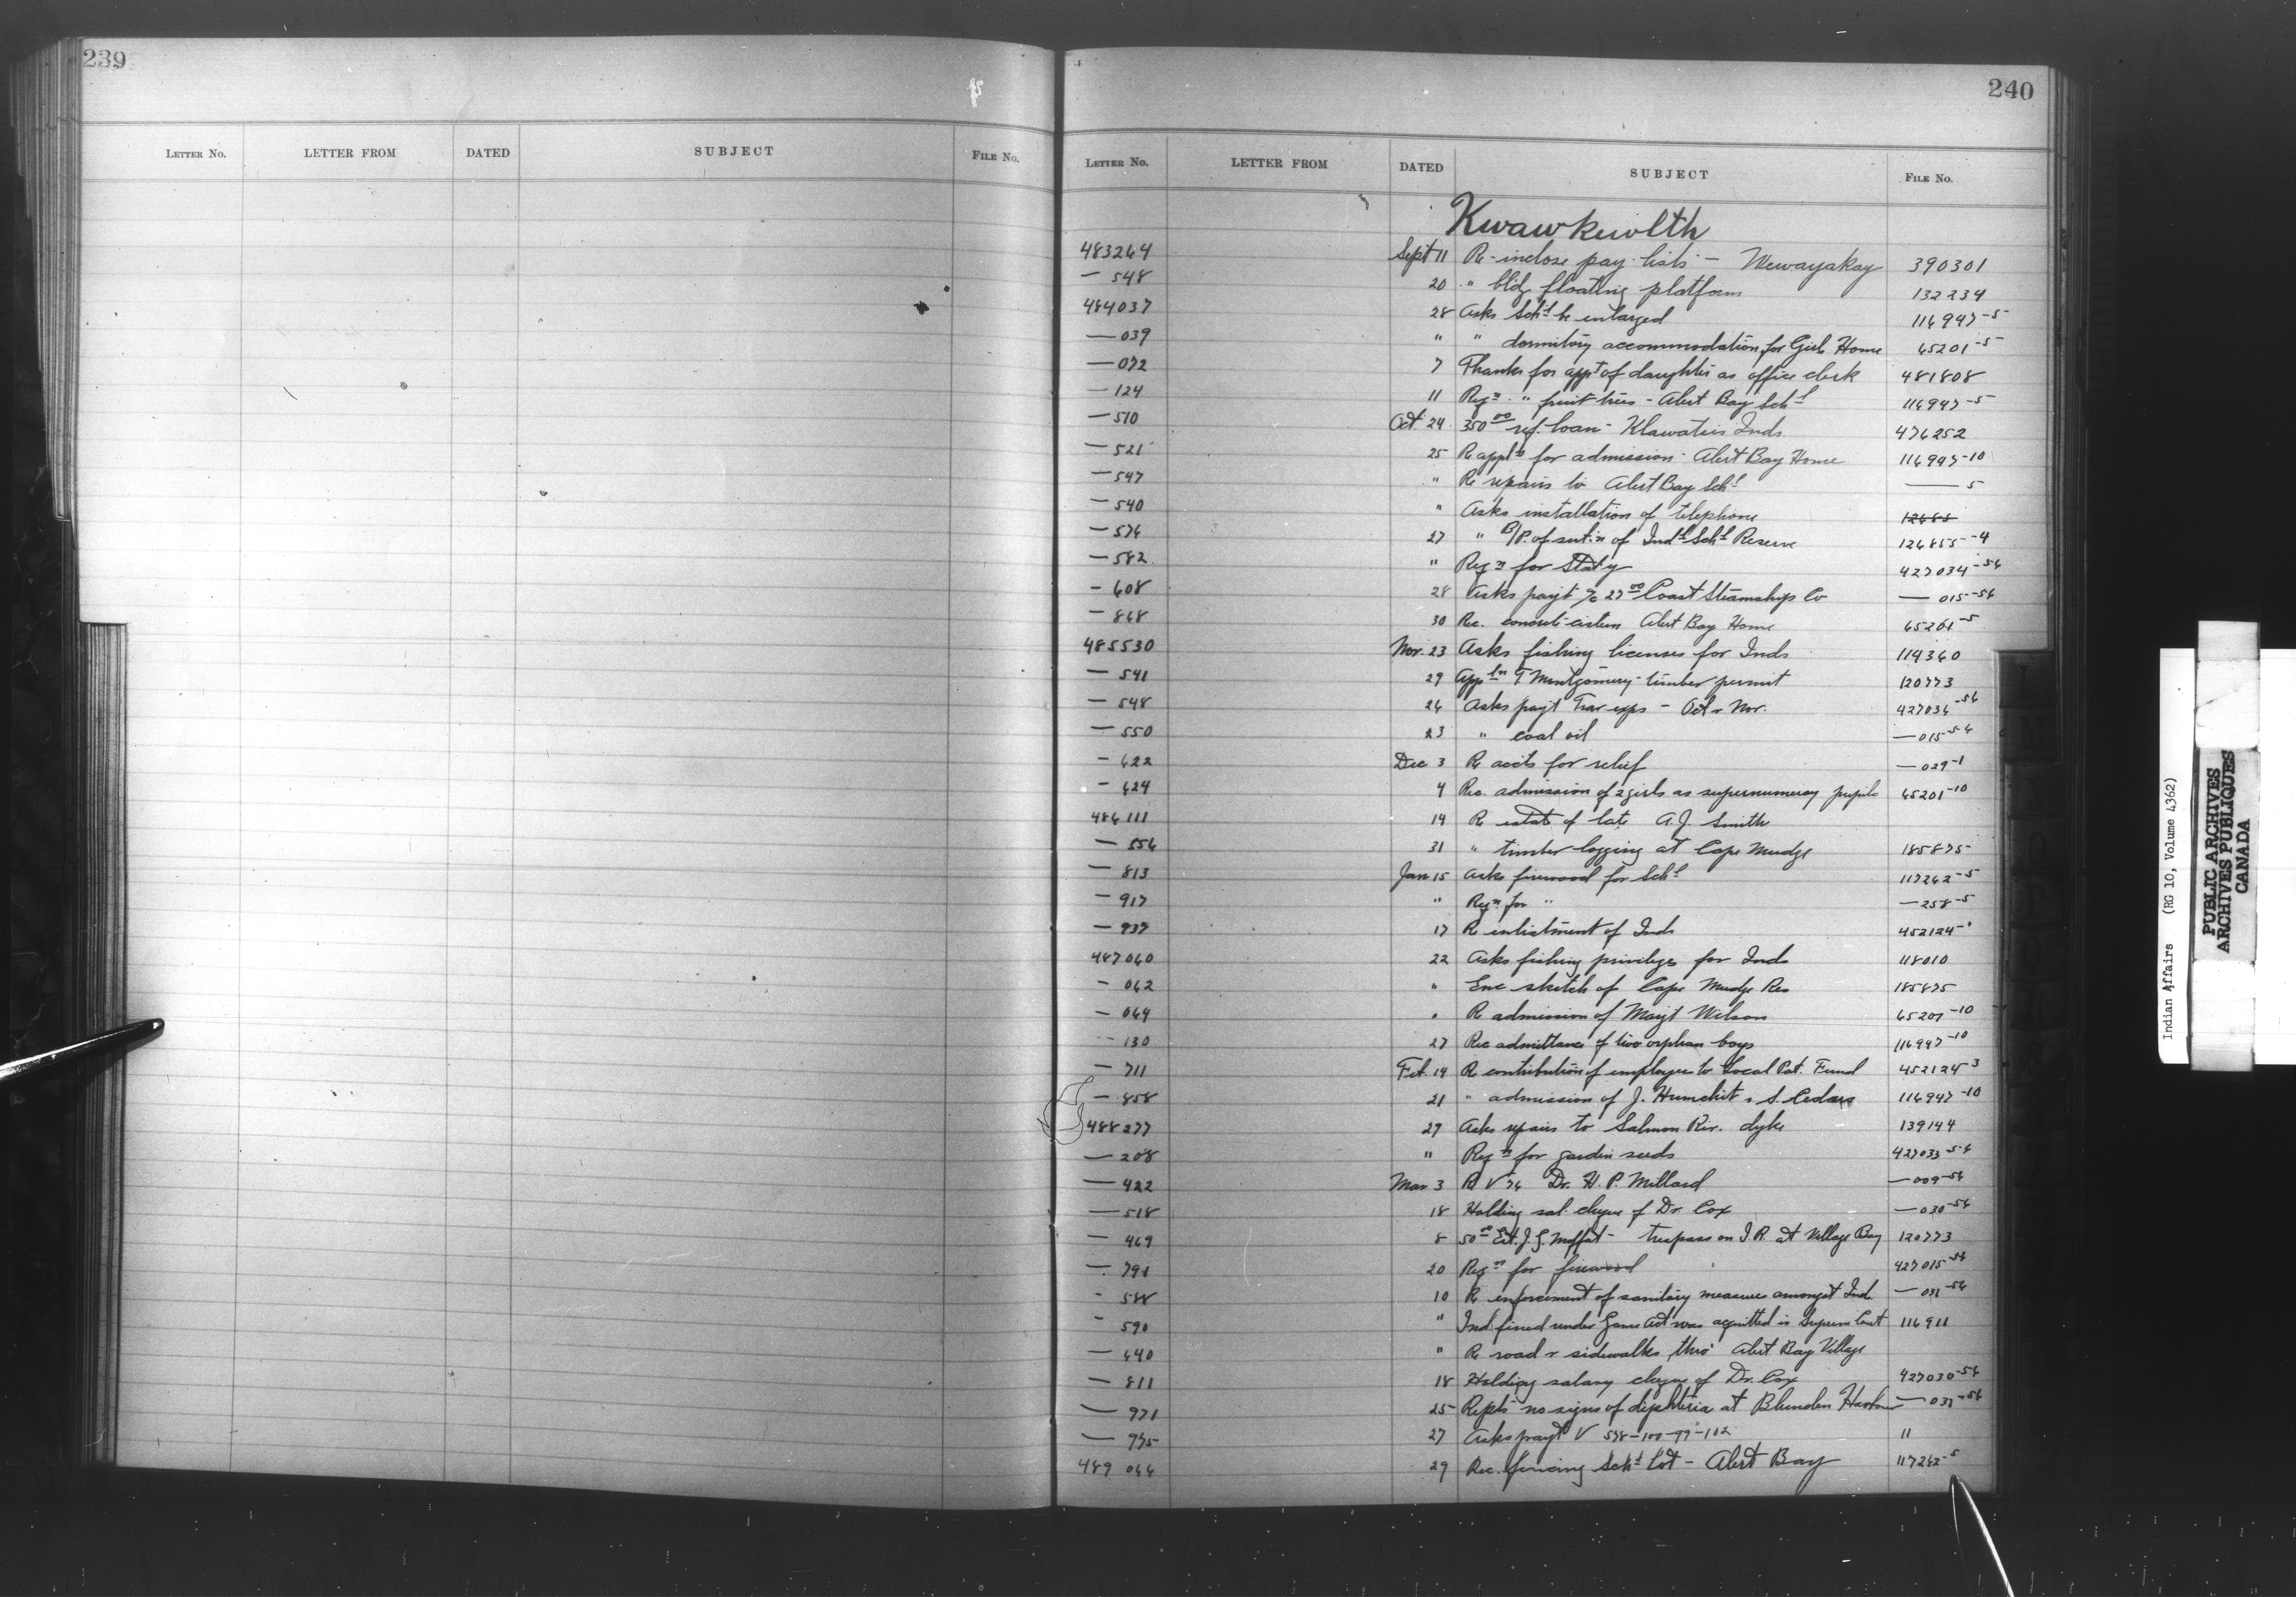 239
LETTER No. LETTER FROM DATED SUBJECT FILE No.
240
LETTER No. LETTER FROM DATED SUBJECT FILE No.
Kwawkewlth
483264 Sept 11 Re-inclose pay lists - Wewayakay 390301
— 548 20 " bldg floating platform 132234
484037 28 Asks Schl be enlarged 116947-5
— 039 " " dormitory accommodation for Girls Home 65201-5
— 072 7 Thanks for appt of daughter as office clerk 481808
— 124 11 Reqn " fruit trees - Alert Bay Schl 116947-5
— 510 Oct. 24 350 00 ref. loan - Klawatsis Inds. 476252
— 521 25 Re appln for admission - Alert Bay Home 116947-10
— 547 " Re repairs to Alert Bay Schl — 5
— 540 " Asks installation of telephone 12685
— 576 27 " B/P. of of Indl Schl Reserve 126855-4
— 582 " Reqn for Staty 427034-56
— 608 28 Asks payt a/c 27 00 Coast Steamship Co — 015-56
— 868 30 Rec. concrete cistern Alert Bay Home 65201-5
485530 Nov. 23 Asks fishing licenses for Inds 119360
— 541 29 Appln T Montgomery - timber permit 120773
— 548 26 Asks payt Trav exps - Oct & Nov. 427036-56
— 550 23 " coal oil — 015-56
— 622 Dec 3 Re accts for relief — 029-1
— 624 4 Rec. admission of 2 girls as supernumeray pupils 65201-10
486111 14 Re estate of late A.J. Smith
— 556 31 " timber logging at Cape Mudge 185875
— 813 Jan 15 Asks firewood for Schl 117262-5
— 917 " Reqn for " — 258-5
— 937 17 Re enlistment of Inds 452124-
487060 22 Asks fishing privileges for Inds 118010
— 062 " Enc sketch of Cape Mudge Res 185875
— 064 " Re admission of Margt Wilson 65201-10
— 130 27 Rec admittance of two orphan boys 116947-10
— 711 Feb. 14 Re contribution of employees to Local Pat. Fund 452124-3
— 858 21 " admission of J. Humchit & S. Cedars 116947-10
488277 27 Asks repairs to Salmon Riv. dyke 139144
— 208 " Reqn for garden seeds 427033-56
— 422 Mar 3 Re V 76 Dr. H. P. Millard — 009-56
— 518 18 Holding sal. cheque of Dr Cox — 030-56
— 469 8 50 00 J. G. Moffat - trespass on I.R. at Village Bay 120773
— 791 20 Reqn for firewood 427015-56
— 588 10 Re enforcement of sanitary measures amongst Ind. — 031-56
— 590 " Ind. fined under Game Act was acquitted in Supreme Court 116911
— 640 " Re road & sidewalks thro' Alert Bay Village
— 811 18 Holding salary cheque of Dr. Cox 427030-56
— 971 25 Repts no signs of diphtheria at Blunden Harbour — 031-56
— 975 27 Asks payt V 578-100-99-102 "
489 066 29 Rec. fencing Schl Lot - Alert Bay 117262-5
Indian Affairs (RG 10, Volume 4362)
PUBLIC ARCHIVES
ARCHIVES PUBLIQUES
CANADA